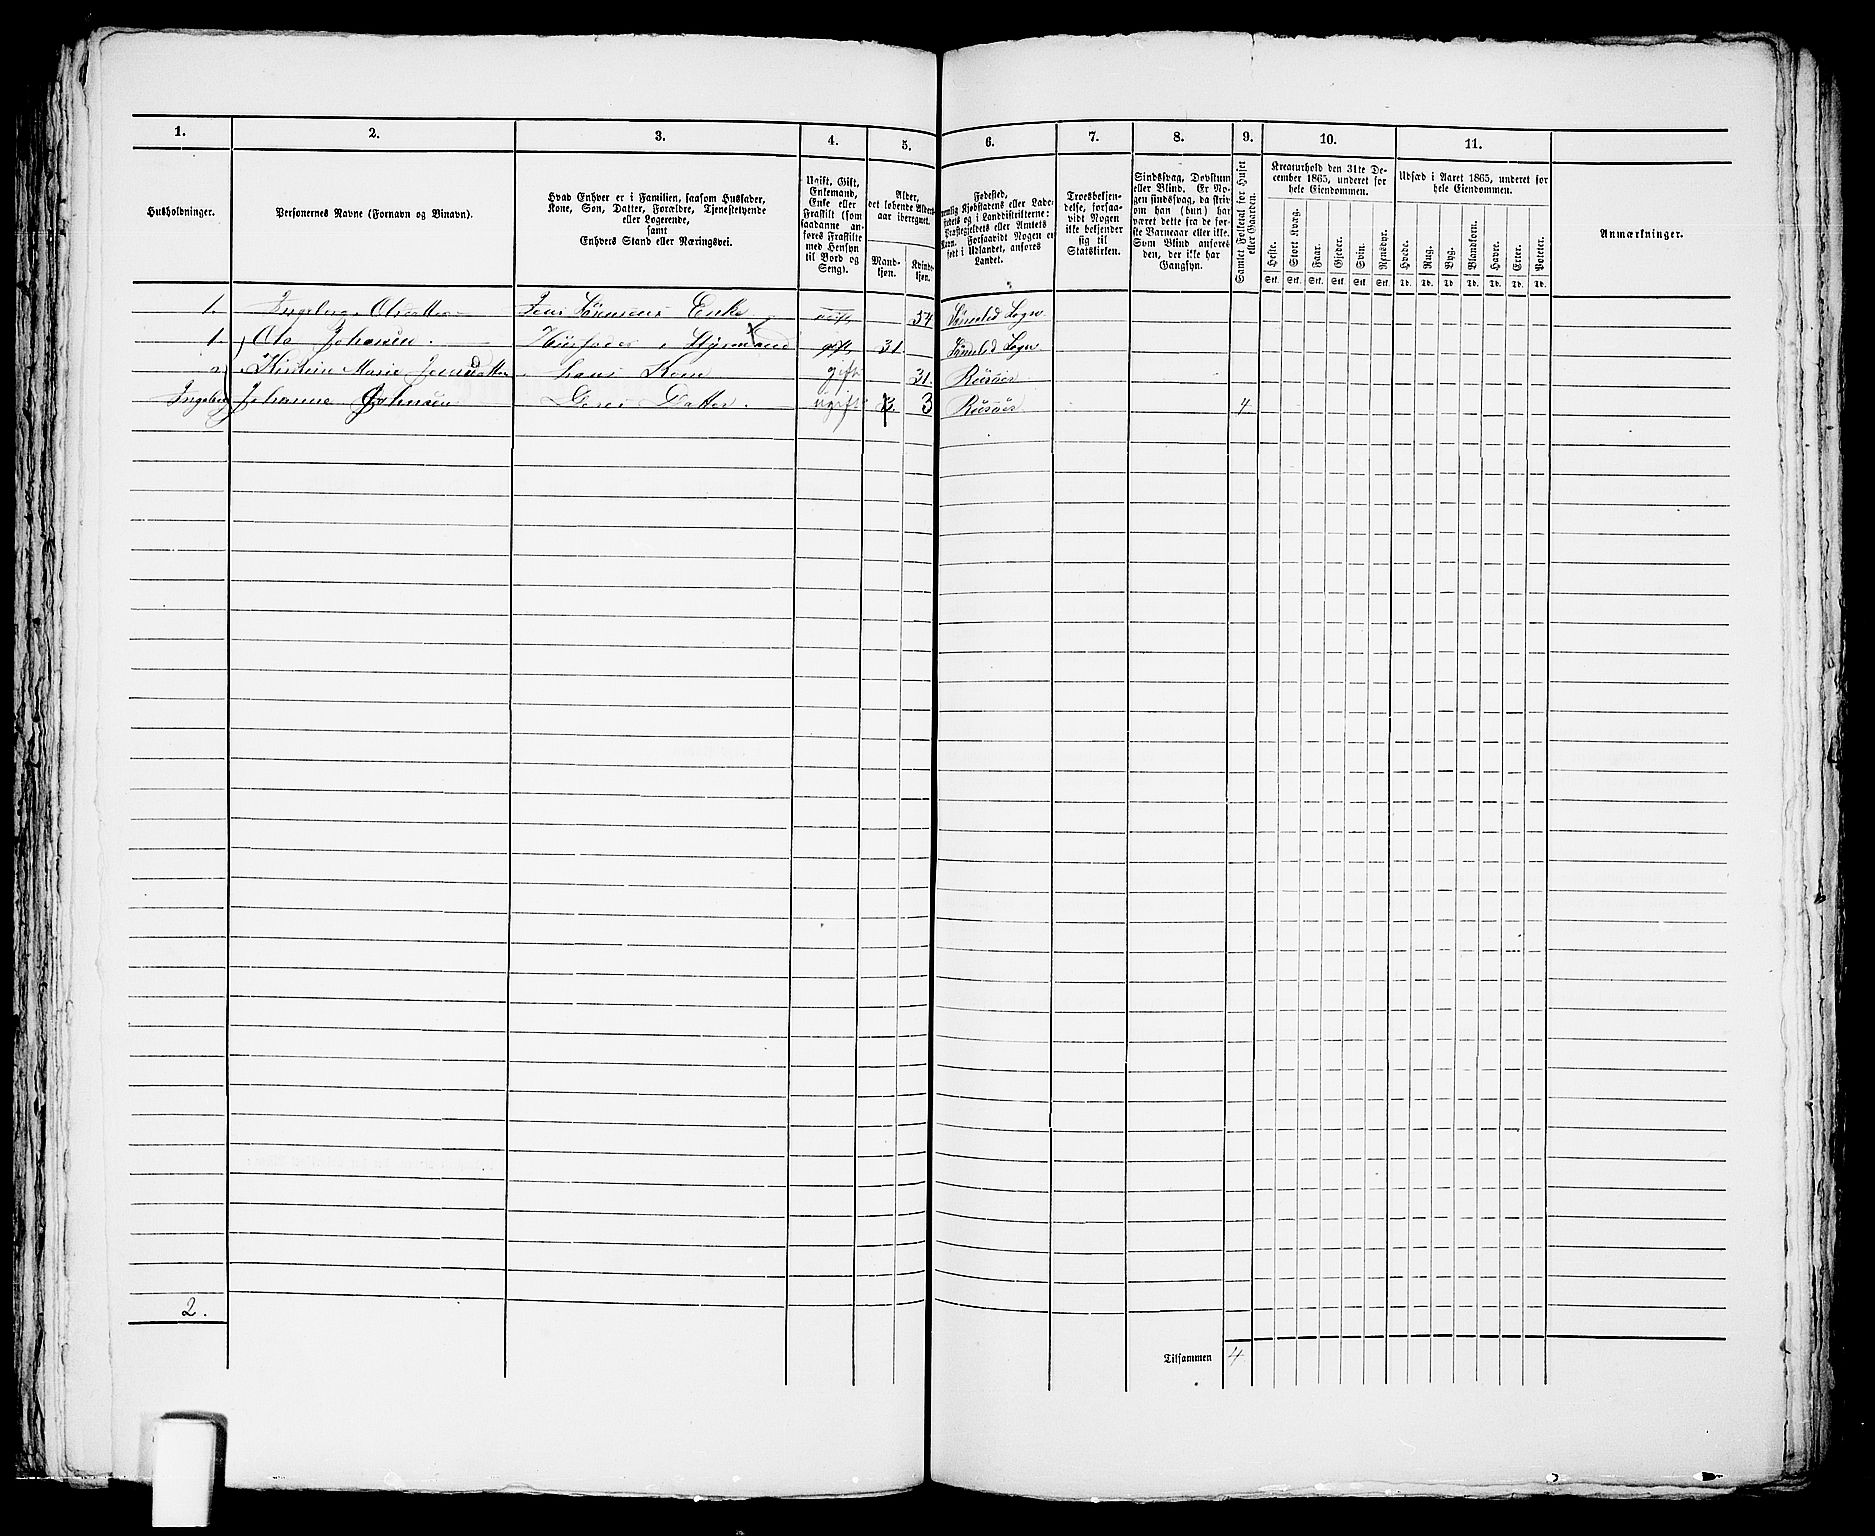 1. 2. 3. 4. 5. 6. 7. 8. 9. 10. 11.
Husholdninger.
Personernes Navne (Fornavn og Binavn).
Hvad Enhver er i Familien, saasom Husfader,
Kone, Søn, Datter, Forældre, Tjenestetyende
eller Logerende,
samt
Enhvers Stand eller Næringsvei.
Ugift, Gift,
Enkemand,
Enke eller
Fraskilt (som
saadanne an-
føres Fraskilte
med Hensyn
til Bord og
Seng).
Alder,
det løbende Alders-
aar iberegnet.
Mand-
kjøn.
Kvinde-
kjøn.
Fødested,
nemlig Kjøbstadens eller Lade-
stedets og i Landdistrikterne:
Præstegjeldets eller Amtets
Navn. Forsaavidt Nogen er
født i Udlandet, anføres
Landet.
Troesbekjen-
delse, forsaa-
vidt Nogen
ikke bekjender
sig til
Statskirken.
Sindssvag, Døvstum
eller Blind. Er No-
gen sindssvag, da skriv
om han (hun) har
været dette fra de før-
ste Barneaar eller ikke.
Som Blind anføres
den, der ikke har
Gangsyn.
Samlet Folketal for Huset
eller Gaarden.
Kreaturhold den 31te De-
cember 1865, underet for
hele Eiendommen.
Heste. Stort Kvæg. Faar. Gjeder. Svin. Rensdyr.
Stk. Stk. Stk. Stk. Stk. Stk.
Udsæd i Aaret 1865, underet for
hele Eiendommen.
Hvede. Rug. Byg. Blandkorn. Havre. Erter. Poteter.
Td. Td. Td. Td. Td. Td. Td.
Anmærkninger.
1. Ingeborg Olsdatter Jens Sørensens Enke 54 Søndeled Sogn
1. Ole Johansen. Huusfader, Styrmand gift 31. Søndeled Sogn
2. Kirstein Marie Jensdatter hans Kone gift 31. Riisøer
Ingeborg Johanne Johnsen Deres Datter. ugift 3 Riisøer 4
2.
Tilsammen 4